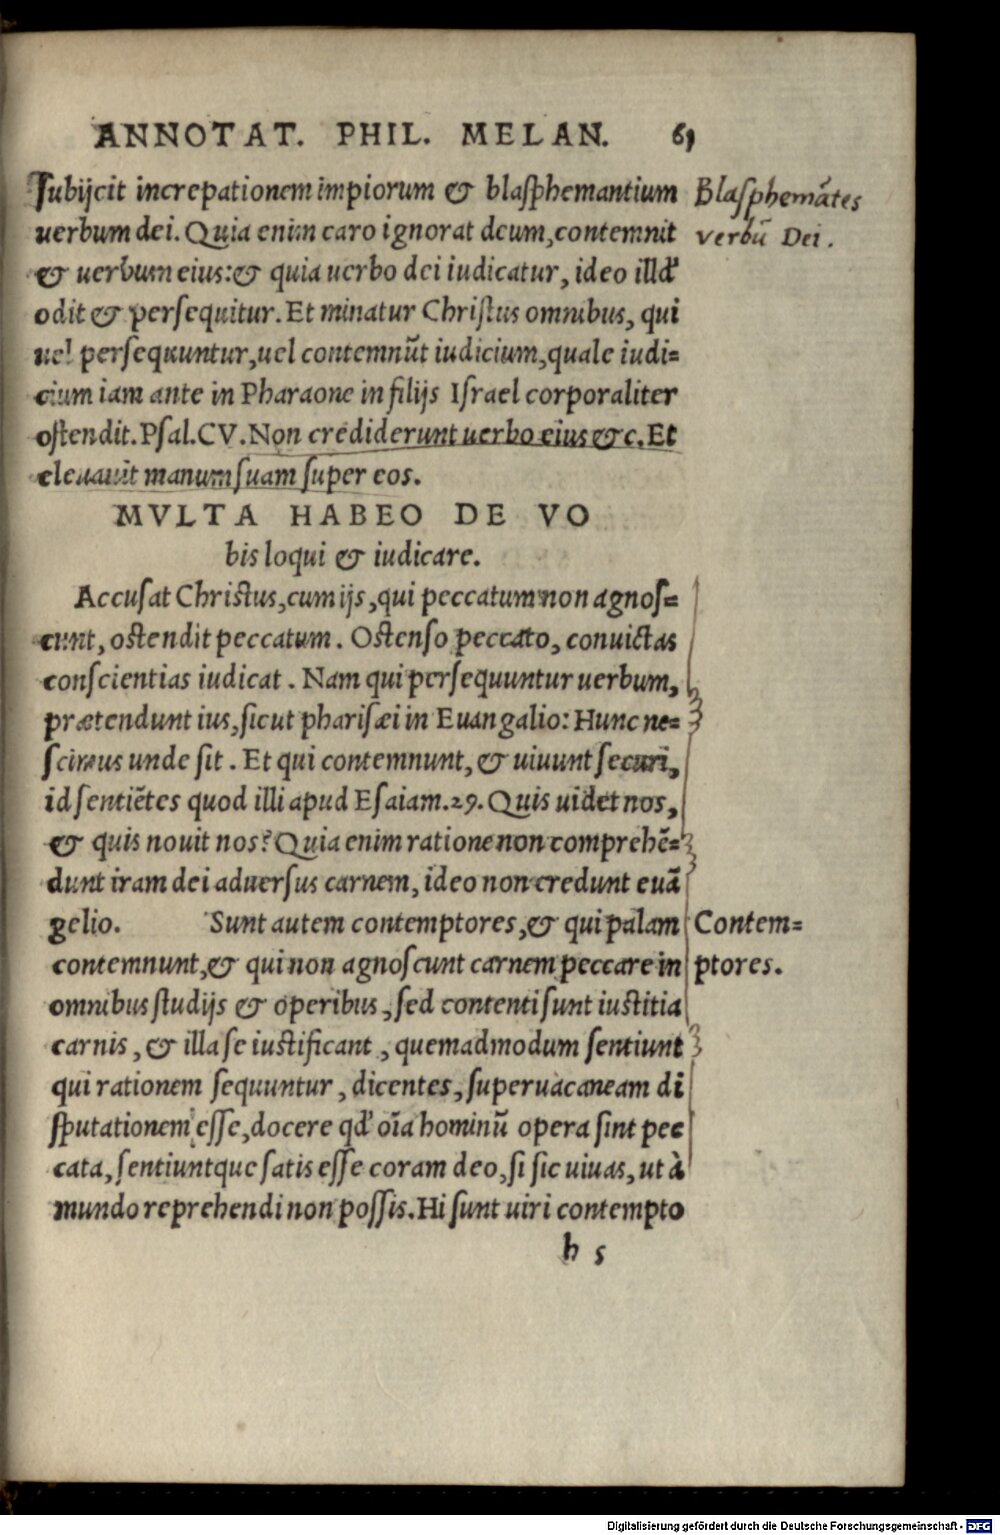 ANNOTAT. PHIL. MELAN. 61
Subijcit increpationem impiorum & blasphemantium
Blasphemātes
uerbum dei. Quia enim caro ignorat deum, contemnit
verbū Dei.
& uerbum eius: & quia uerbo dei iudicatur, ideo illd'
odit & persequitur. Et minatur Christus omnibus, qui
uel persequuntur, uel contemnūt iudicium, quale iudi=
cium iam ante in Pharaone in filijs Israel corporaliter
ostendit. Psal. CV. Non crediderunt uerbo eius &c. Et
eleuauit manum suam super eos.
MVLTA HABEO DE VO
bis loqui & iudicare.
Accusat Christus, cum ijs, qui peccatum non agnos=
cunt, ostendit peccatum. Ostenso peccato, conuictas
conscientias iudicat. Nam qui persequuntur uerbum,
prætendunt ius, sicut pharisæi in Euangalio: Hunc ne=
scimus unde sit. Et qui contemnunt, & uiuunt securi,
id sentiētes quod illi apud Esaiam. 29. Quis uidet nos,
& quis nouit nos? Quia enim ratione non comprehē=
dunt iram dei aduersus carnem, ideo non credunt euā
gelio. Sunt autem contemptores, & qui palam
Contem=
contemnunt, & qui non agnoscunt carnem peccare in
ptores.
omnibus studijs & operibus, sed contenti sunt iustitia
carnis, & illa se iustificant, quemadmodum sentiunt
qui rationem sequuntur, dicentes, superuacaneam di
sputationem esse, docere qd' oīa hominū opera sint pec
cata, sentiuntque satis esse coram deo, si sic uiuas, ut à
mundo reprehendi non possis. Hi sunt uiri contempto
h 5
Digitalisierung gefördert durch die Deutsche Forschungsgemeinschaft - DFG